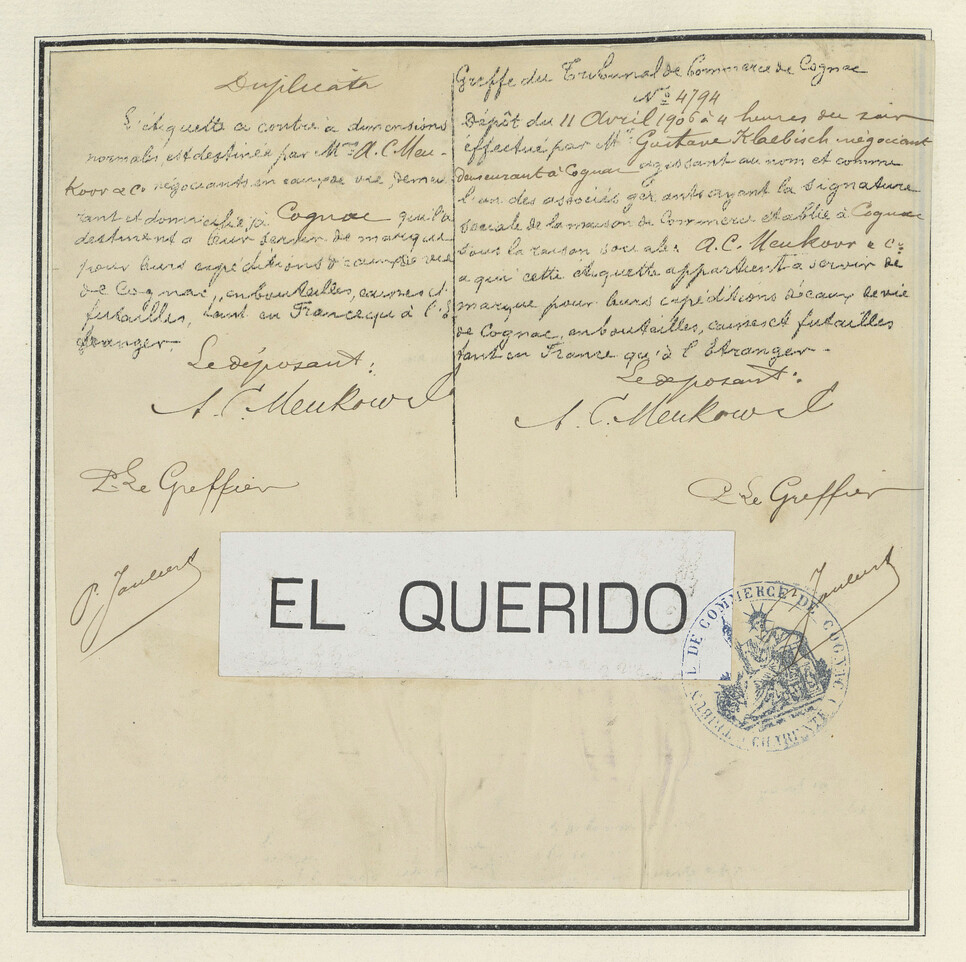 Duplicata
L'étiquette ci contre à dimensions
normales, est destinée par MM. A. C. Meu-
Kow & Co négociants en eaux de vie, demeu
rant et domiciliés à Cognac qui l'a
destinent à leur servir de marque
pour leurs expéditions d'eaux de vie
de Cognac, en bouteilles, caisses et
futailles, tant en France qu'à l'é
tranger.
Le déposant:
A. C. Meukow & C
P. Le Greffier
Greffe du Tribunal de Commerce de Cognac
No 4794
Dépôt du 11 Avril 1906 à 4 heures du soir
effectué par Mr Gustave Klaebisch négociant
demeurant à Cognac agissant au nom et comme
l'un des associés gérants ayant la signature
sociale de la maison de Commerce établie à Cognac
sous la raison sociale: A. C. Meukow & Co
a qui cette étiquette appartient a servir de
marque pour leurs expéditions d'eaux de vie
de Cognac, en bouteilles, caisses et futailles
tant en France qu'à l'Étranger.
Le déposant:
A. C. Meukow & C
P. Le Greffier
EL QUERIDO
TRIBUNAL DE COMMERCE DE COGNAC (CHARENTE)